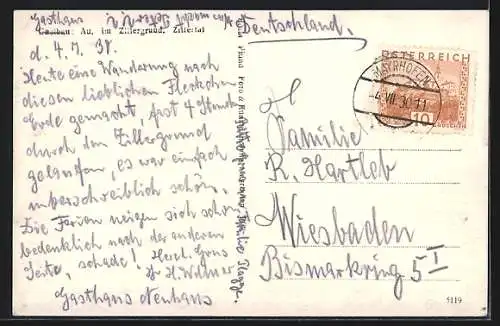 Gasthaus
Gasthau: Au, im Zillergrund, Zillertal
d. 4. 7. 30.
Heute eine Wanderung nach
diesem lieblichen Fleckchen
Erde gemacht, fast 4 Stunden
durch den Zillergrund
gelaufen, es war einfach
unbeschreiblich schön.
Die Ferien neigen sich schon
bedenklich nach der anderen
Seite, schade! Herzl. Gruss
Gasthaus Neuhaus
Deutschland.
ÖSTERREICH
MAYRHOFEN
4.VII.30.11
10
Familie
R. Hartleb
Wiesbaden
Bismarkring 5 I
5119